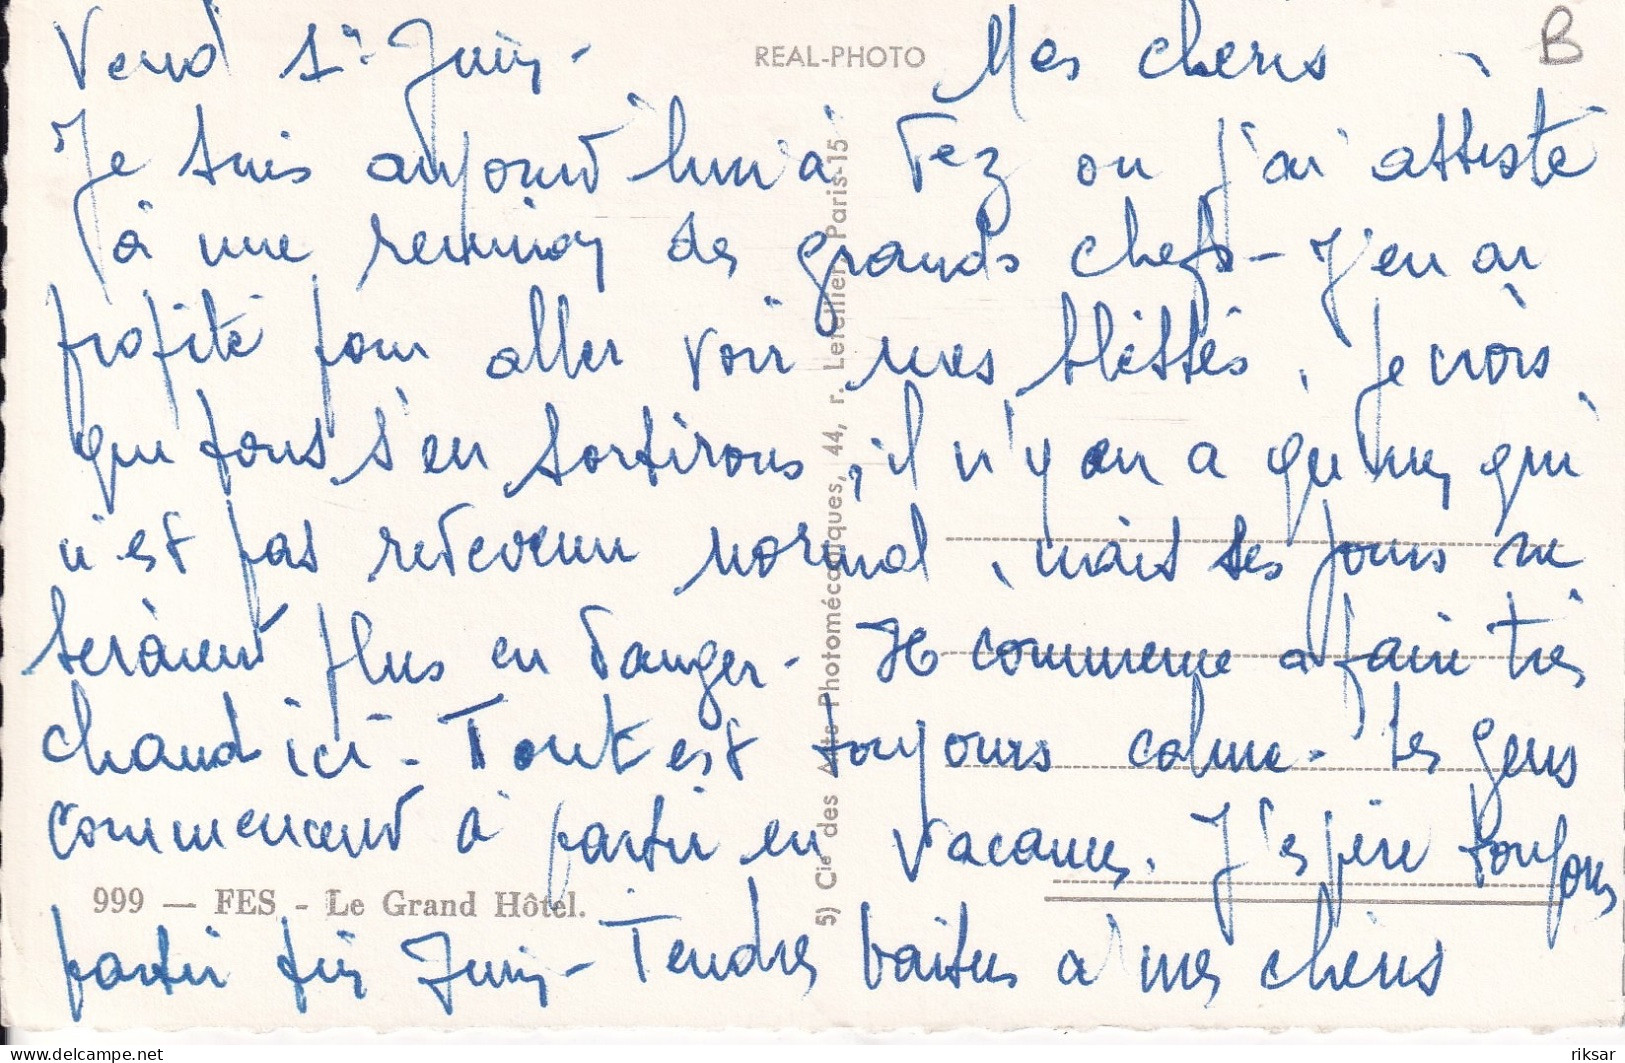 Vend 1er Juin - REAL-PHOTO Mes chéris B
Je suis aujourd'hui à Fez ou j'ai assisté
à une reunion des grands chefs - J'en ai
profité pour aller voir mes blessés, Je crois
que tous s'en sortirons, il n'y en a qu'un qui
n'est pas redevenu normal, mais ses jours ne
seraient plus en danger - Il commence a faire très
chaud ici - Tout est toujours calme - Les gens
commencent à partir en vacances. J'espère toujours
partir fin Juin - Tendres baisers a mes chéris
999 — FES - Le Grand Hôtel.
5) Cie des Arts Photomécaniques, 44, r. Letellier Paris-15
riksar
delcampe.net